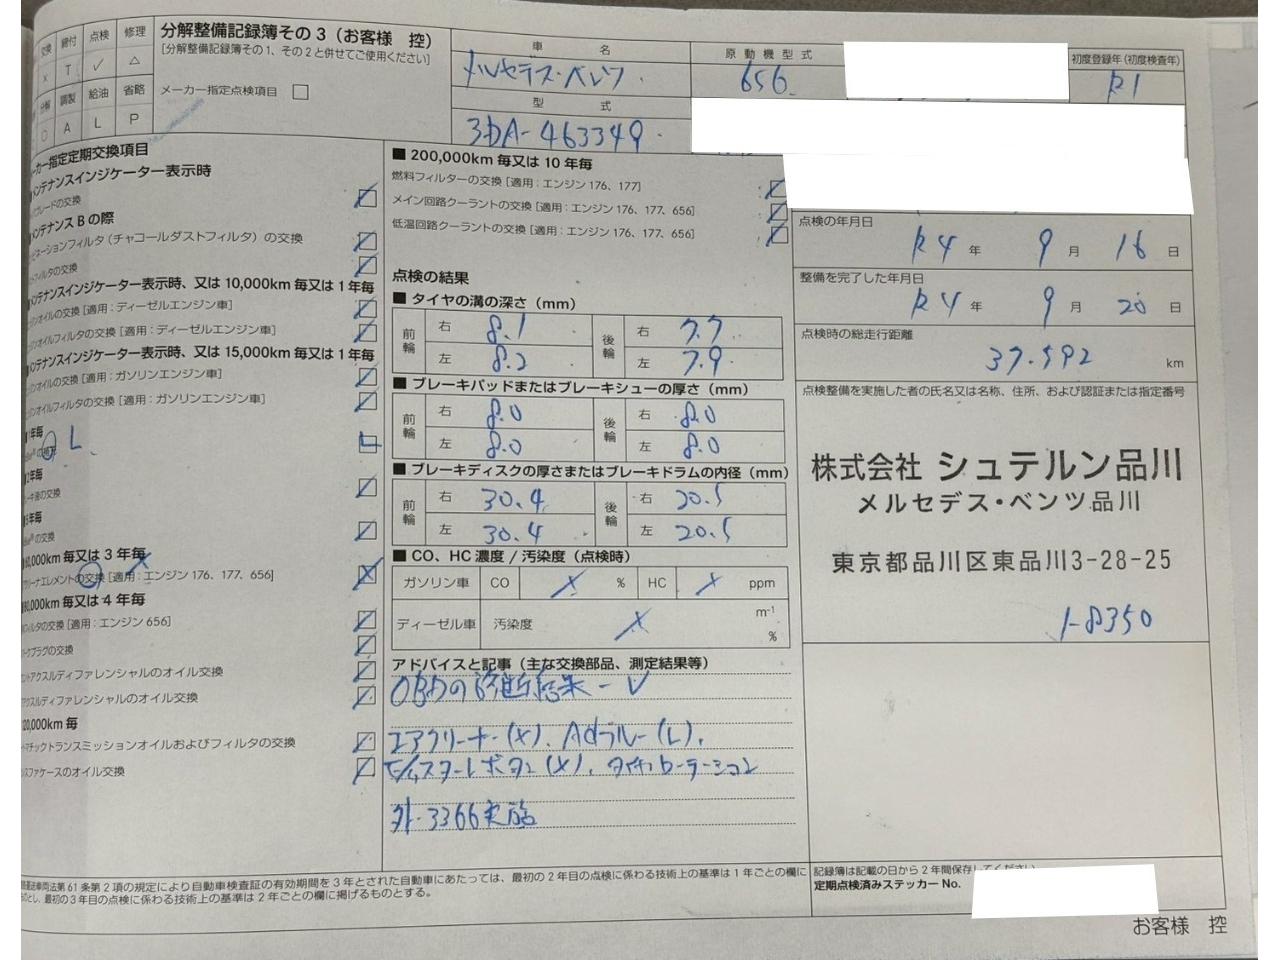 交換 締付 点検 修理
x T ✓ △
調製 給油 省略
A L P
分解整備記録簿その3（お客様 控）
[分解整備記録簿その1、その2と併せてご使用ください]
メーカー指定点検項目 □
車名
メルセデス・ベンツ
原動機型式
656
初度登録年(初度検査年)
R1
型式
3DA-463349
カー指定定期交換項目
メンテナンスインジケーター表示時
ブレードの交換
メンテナンスBの際
ビネーションフィルタ(チャコールダストフィルタ)の交換
トフィルタの交換
メンテナンスインジケーター表示時、又は10,000km毎又は1年毎
ンジンオイルの交換 [適用：ディーゼルエンジン車]
ンジンオイルフィルタの交換 [適用：ディーゼルエンジン車]
メンテナンスインジケーター表示時、又は15,000km毎又は1年毎
ンジンオイルの交換 [適用：ガソリンエンジン車]
ンジンオイルフィルタの交換 [適用：ガソリンエンジン車]
1年毎
L
2年毎
ーキ液の交換
年毎
の交換
0,000km毎又は3年毎
x
アクリーナエレメントの交換 [適用：エンジン176、177、656]
0,000km毎又は4年毎
フィルタの交換 [適用：エンジン656]
ークプラグの交換
ントアクスルディファレンシャルのオイル交換
アクスルディファレンシャルのオイル交換
20,000km毎
トマチックトランスミッションオイルおよびフィルタの交換
ンスファケースのオイル交換
■ 200,000km毎又は10年毎
燃料フィルターの交換 [適用：エンジン176、177]
メイン回路クーラントの交換 [適用：エンジン176、177、656]
低温回路クーラントの交換 [適用：エンジン176、177、656]
点検の結果
■ タイヤの溝の深さ（mm）
前輪 右 8.1 後輪 右 7.7
左 8.2 左 7.9
■ ブレーキパッドまたはブレーキシューの厚さ（mm）
前輪 右 8.0 後輪 右 8.0
左 8.0 左 8.0
■ ブレーキディスクの厚さまたはブレーキドラムの内径（mm）
前輪 右 30.4 後輪 右 20.5
左 30.4 左 20.5
■ CO、HC濃度 / 汚染度（点検時）
ガソリン車 CO x % HC x ppm
ディーゼル車 汚染度 x m⁻¹ %
アドバイスと記事（主な交換部品、測定結果等）
OBDの診断結果-✓
エアクリーナー(x)、Adブルー(L)、
(x)、タイヤローテーション
外-3366実施
点検の年月日
R4年 9月 16日
整備を完了した年月日
R4年 9月 20日
点検時の総走行距離
37.592 km
点検整備を実施した者の氏名又は名称、住所、および認証または指定番号
株式会社 シュテルン品川
メルセデス・ベンツ品川
東京都品川区東品川3-28-25
1-8350
両法第61条第2項の規定により自動車検査証の有効期間を3年とされた自動車にあたっては、最初の2年目の点検に係わる技術上の基準は1年ごとの欄に
とし、最初の3年目の点検に係わる技術上の基準は2年ごとの欄に掲げるものとする。
記録簿は記載の日から2年間保存してください
定期点検済みステッカーNo.
お客様 控